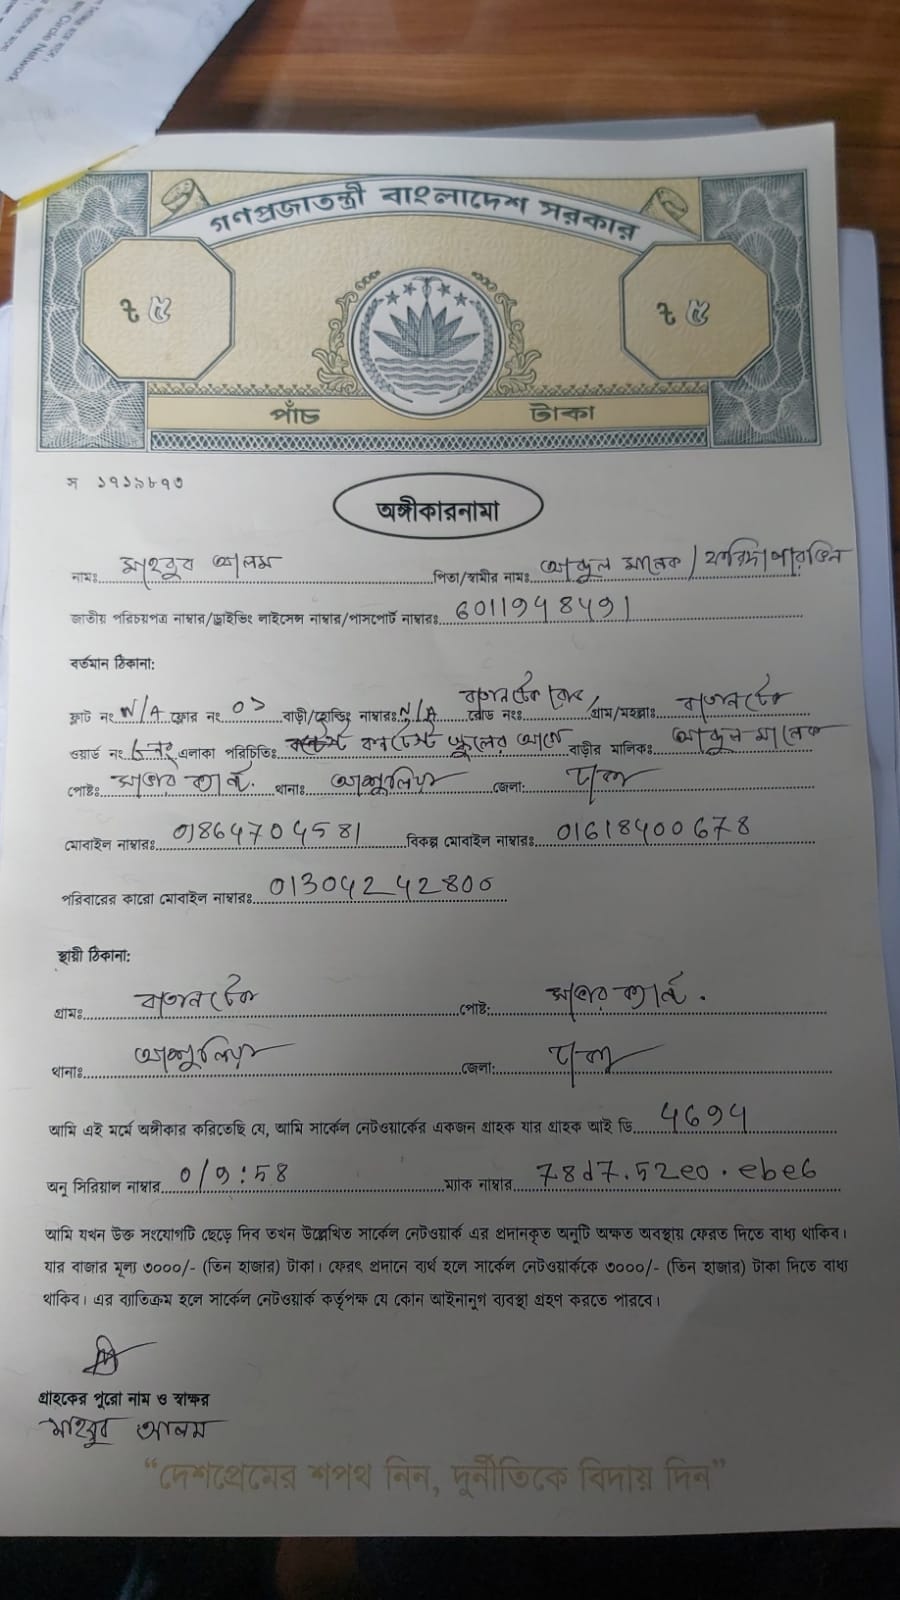 Circle Network
গণপ্রজাতন্ত্রী বাংলাদেশ সরকার
৳ ৫ ৳ ৫
পাঁচ টাকা
স ১৭১৯৮৭৩
অঙ্গীকারনামা
নামঃ মাহবুব আলম পিতা/স্বামীর নামঃ আব্দুল মালেক / ফরিদা পারভিন
জাতীয় পরিচয়পত্র নাম্বার/ড্রাইভিং লাইসেন্স নাম্বার/পাসপোর্ট নাম্বারঃ 6011948491
বর্তমান ঠিকানা:
ফ্লাট নং N/A ফ্লোর নং ০১ বাড়ী/হোল্ডিং নাম্বারঃ N/A রোড নংঃ রোড গ্রাম/মহল্লাঃ
ওয়ার্ড নং ৬ নং এলাকা পরিচিতিঃ স্কুলের আগে বাড়ীর মালিকঃ আব্দুল মালেক
পোষ্টঃ সাভার ক্যান্ট. থানাঃ আশুলিয়া জেলা: ঢাকা
মোবাইল নাম্বারঃ 01864704581 বিকল্প মোবাইল নাম্বারঃ 01618400678
পরিবারের কারো মোবাইল নাম্বারঃ 01304242800
স্থায়ী ঠিকানা:
গ্রামঃ পোষ্ট: সাভার ক্যান্ট.
থানাঃ আশুলিয়া জেলা: ঢাকা
আমি এই মর্মে অঙ্গীকার করিতেছি যে, আমি সার্কেল নেটওয়ার্কের একজন গ্রাহক যার গ্রাহক আই ডি 4694
অনু সিরিয়াল নাম্বার 0/9:58 ম্যাক নাম্বার 78d7.52e0.ebe6
আমি যখন উক্ত সংযোগটি ছেড়ে দিব তখন উল্লেখিত সার্কেল নেটওয়ার্ক এর প্রদানকৃত অনুটি অক্ষত অবস্থায় ফেরত দিতে বাধ্য থাকিব।
যার বাজার মূল্য ৩০০০/- (তিন হাজার) টাকা। ফেরৎ প্রদানে ব্যর্থ হলে সার্কেল নেটওয়ার্ককে ৩০০০/- (তিন হাজার) টাকা দিতে বাধ্য
থাকিব। এর ব্যতিক্রম হলে সার্কেল নেটওয়ার্ক কর্তৃপক্ষ যে কোন আইনানুগ ব্যবস্থা গ্রহণ করতে পারবে।
গ্রাহকের পুরো নাম ও স্বাক্ষর
মাহবুব আলম
“দেশপ্রেমের শপথ নিন, দুর্নীতিকে বিদায় দিন”